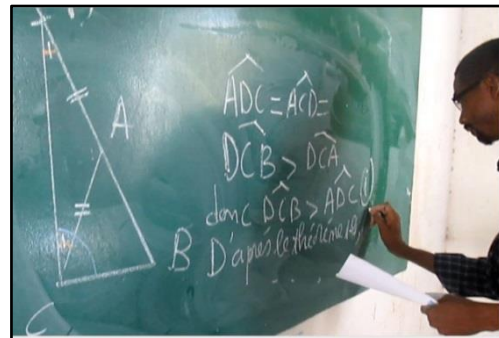 A
C
B
ADC = ACD =
DCB > DCA
donc DCB > ADC (1)
D'après le théorème